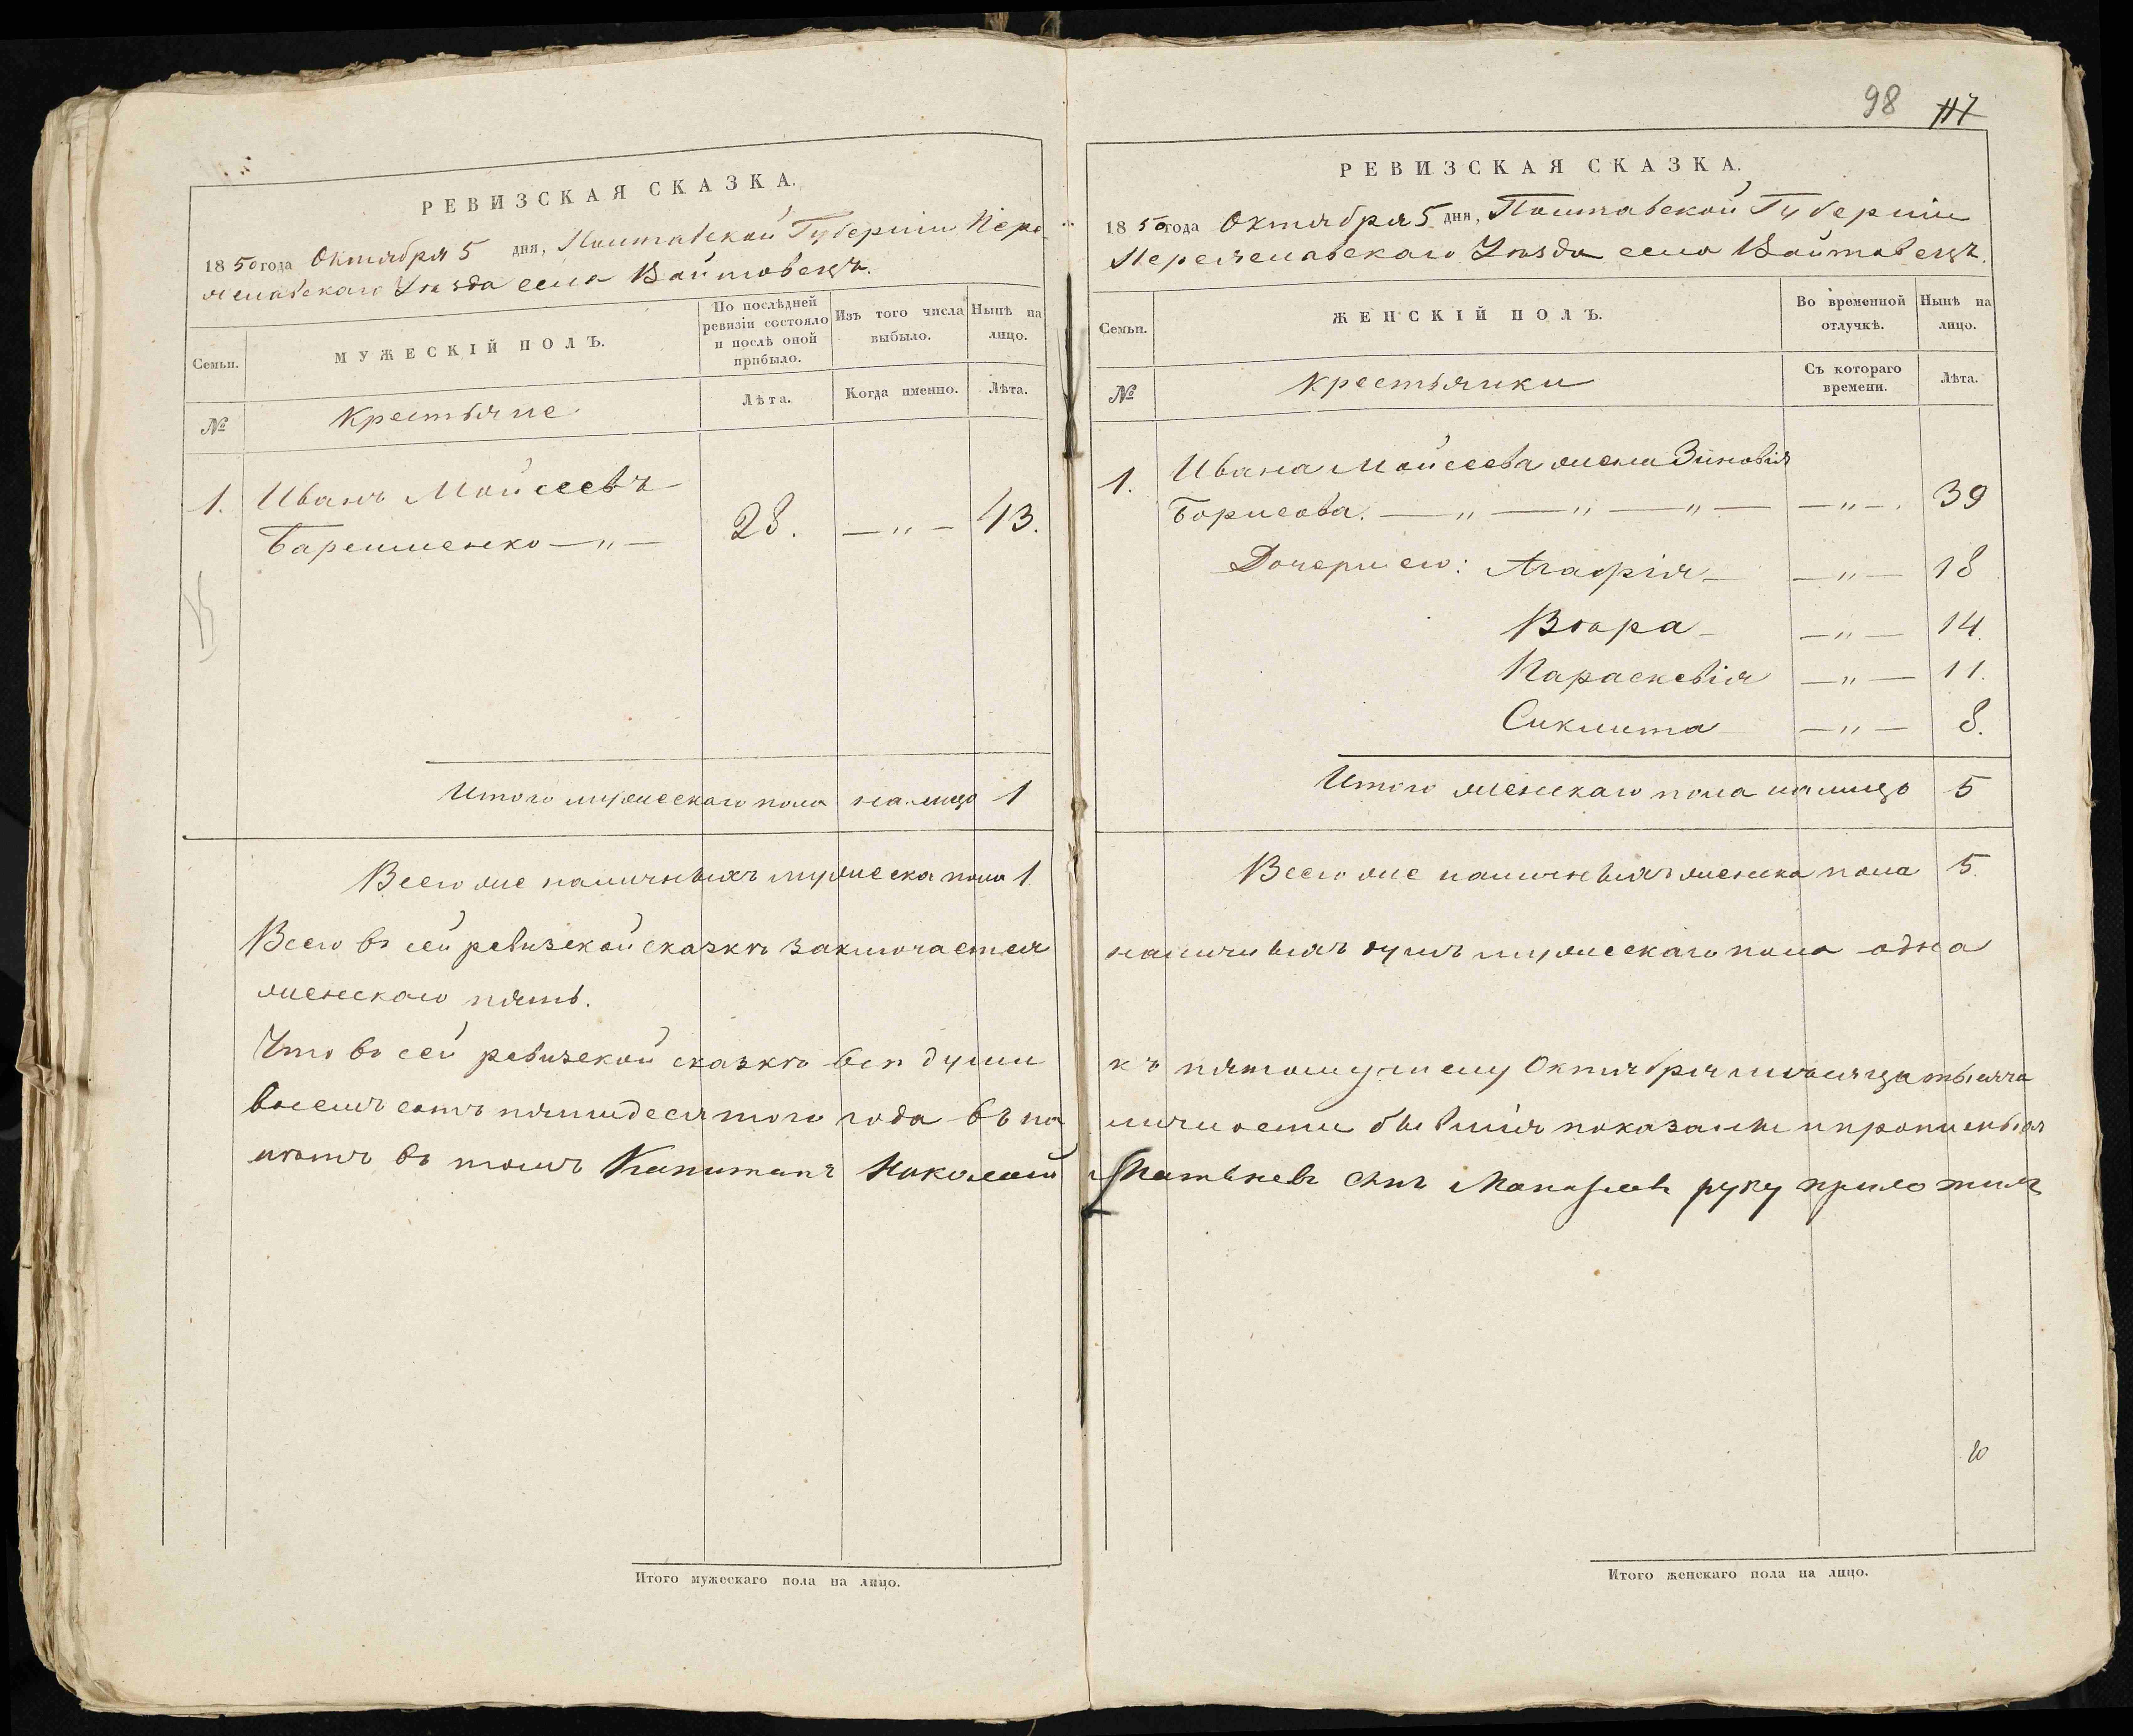 РЕВИЗСКАЯ СКАЗКА.
1850 года Октября 5 дня, Полтавской Губерніи Пере-
яславскаго Уѣзда села Войтовецъ.
Семьи.
МУЖЕСКІЙ ПОЛЪ.
По послѣдней ревизіи состояло и послѣ оной прибыло.
Изъ того числа выбыло.
Нынѣ на лицо.
№
Крестьяне
Лѣта.
Когда именно.
Лѣта.
1. Иванъ Мойсеевъ
28. —„— 43.
Итого мужескаго пола на лицо 1
Всего же наличныхъ мужеска пола 1.
Всего въ сей ревизской сказкѣ заключается
женскаго пять.
Что въ сей ревизской сказкѣ всѣ души
восемь сотъ пятидесятого года въ на
въ томъ Капитанъ Николай
Итого мужескаго пола на лицо.
98 117
РЕВИЗСКАЯ СКАЗКА.
1850 года Октября 5 дня, Полтавской Губерніи
Переяславскаго Уѣзда села Войтовецъ.
Семьи.
ЖЕНСКІЙ ПОЛЪ.
Во временной отлучкѣ.
Нынѣ на лицо.
№
Крестьянки
Съ котораго времени.
Лѣта.
1. Ивана Мойсеева жена Зиновія
Борисова. —„—„—„— —„—. 39
Дочери его: Агафія —„— 18
Вѣра —„— 14.
Параскевія —„— 11.
Сиклита —„— 8.
Итого женскаго пола на лицо 5
Всего же наличныхъ женска пола 5.
наличныхъ душъ мужескаго пола одна
къ пятому числу Октября мѣсяца тысяча
личности бывшія показаны и
сынъ руку приложилъ
Итого женскаго пола на лицо.